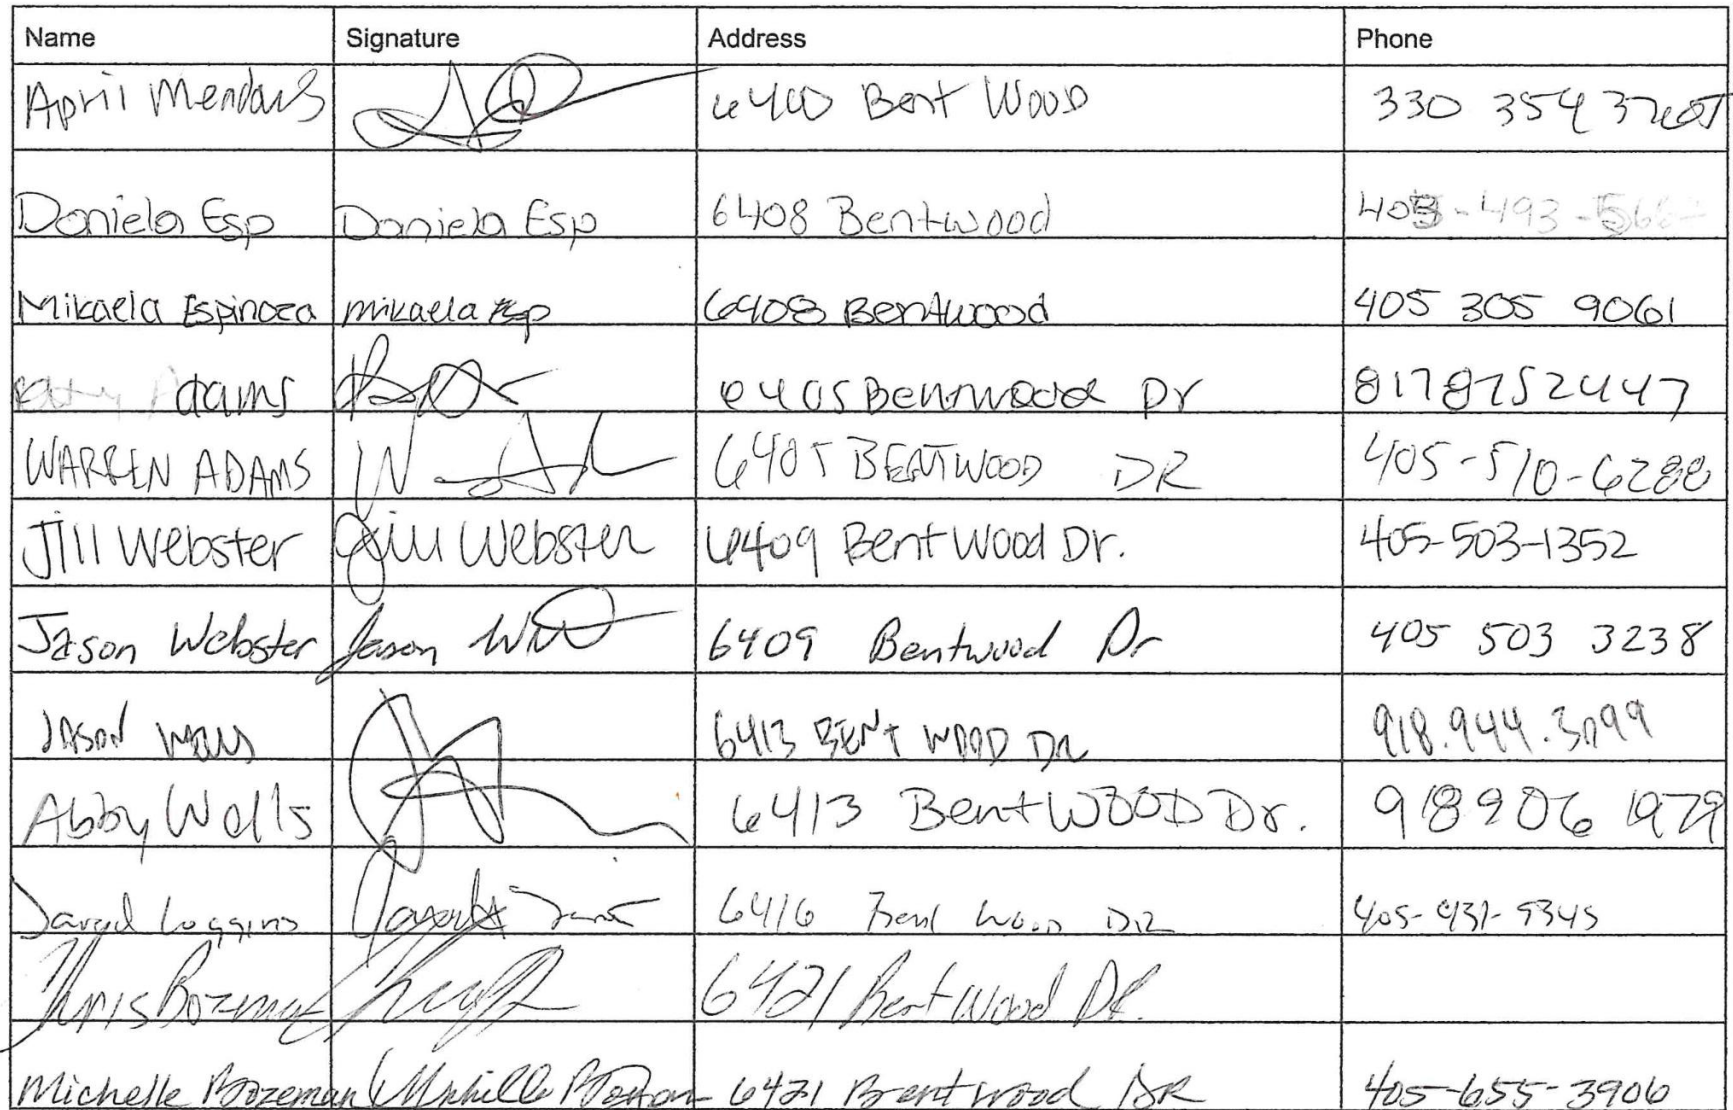 Name Signature Address Phone
April 6400 Bent Wood 330 354
Daniela Esp Daniela Esp 6408 Bentwood 405-493-
Mikaela Espinoza mikaela Esp 6408 Bentwood 405 305 9061
Adams 6405 Bentwood Dr 8178752447
WARREN ADAMS 6405 BENTWOOD DR 405-510-6288
Jill Webster Jill Webster 6409 Bent Wood Dr. 405-503-1352
Jason Webster Jason 6409 Bentwood Dr 405 503 3238
JASON 6413 BENT WOOD DR 918.944.3099
Abby Walls 6413 Bent WOOD Dr. 918 906 1979
Loggins 6416 Bent Wood DR
Chris Bozeman 6421 Bent Wood DR.
Michelle Bozeman Michelle Bozeman 6421 Brentwood DR 405-655-3906